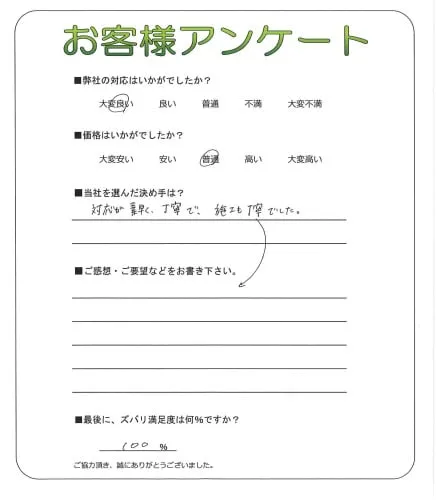 お客様アンケート
■弊社の対応はいかがでしたか？
大変良い 良い 普通 不満 大変不満
■価格はいかがでしたか？
大変安い 安い 普通 高い 大変高い
■当社を選んだ決め手は？
対応が素早く、丁寧で、施工も丁寧でした。
■ご感想・ご要望などをお書き下さい。
■最後に、ズバリ満足度は何％ですか？
100 ％
ご協力頂き、誠にありがとうございました。